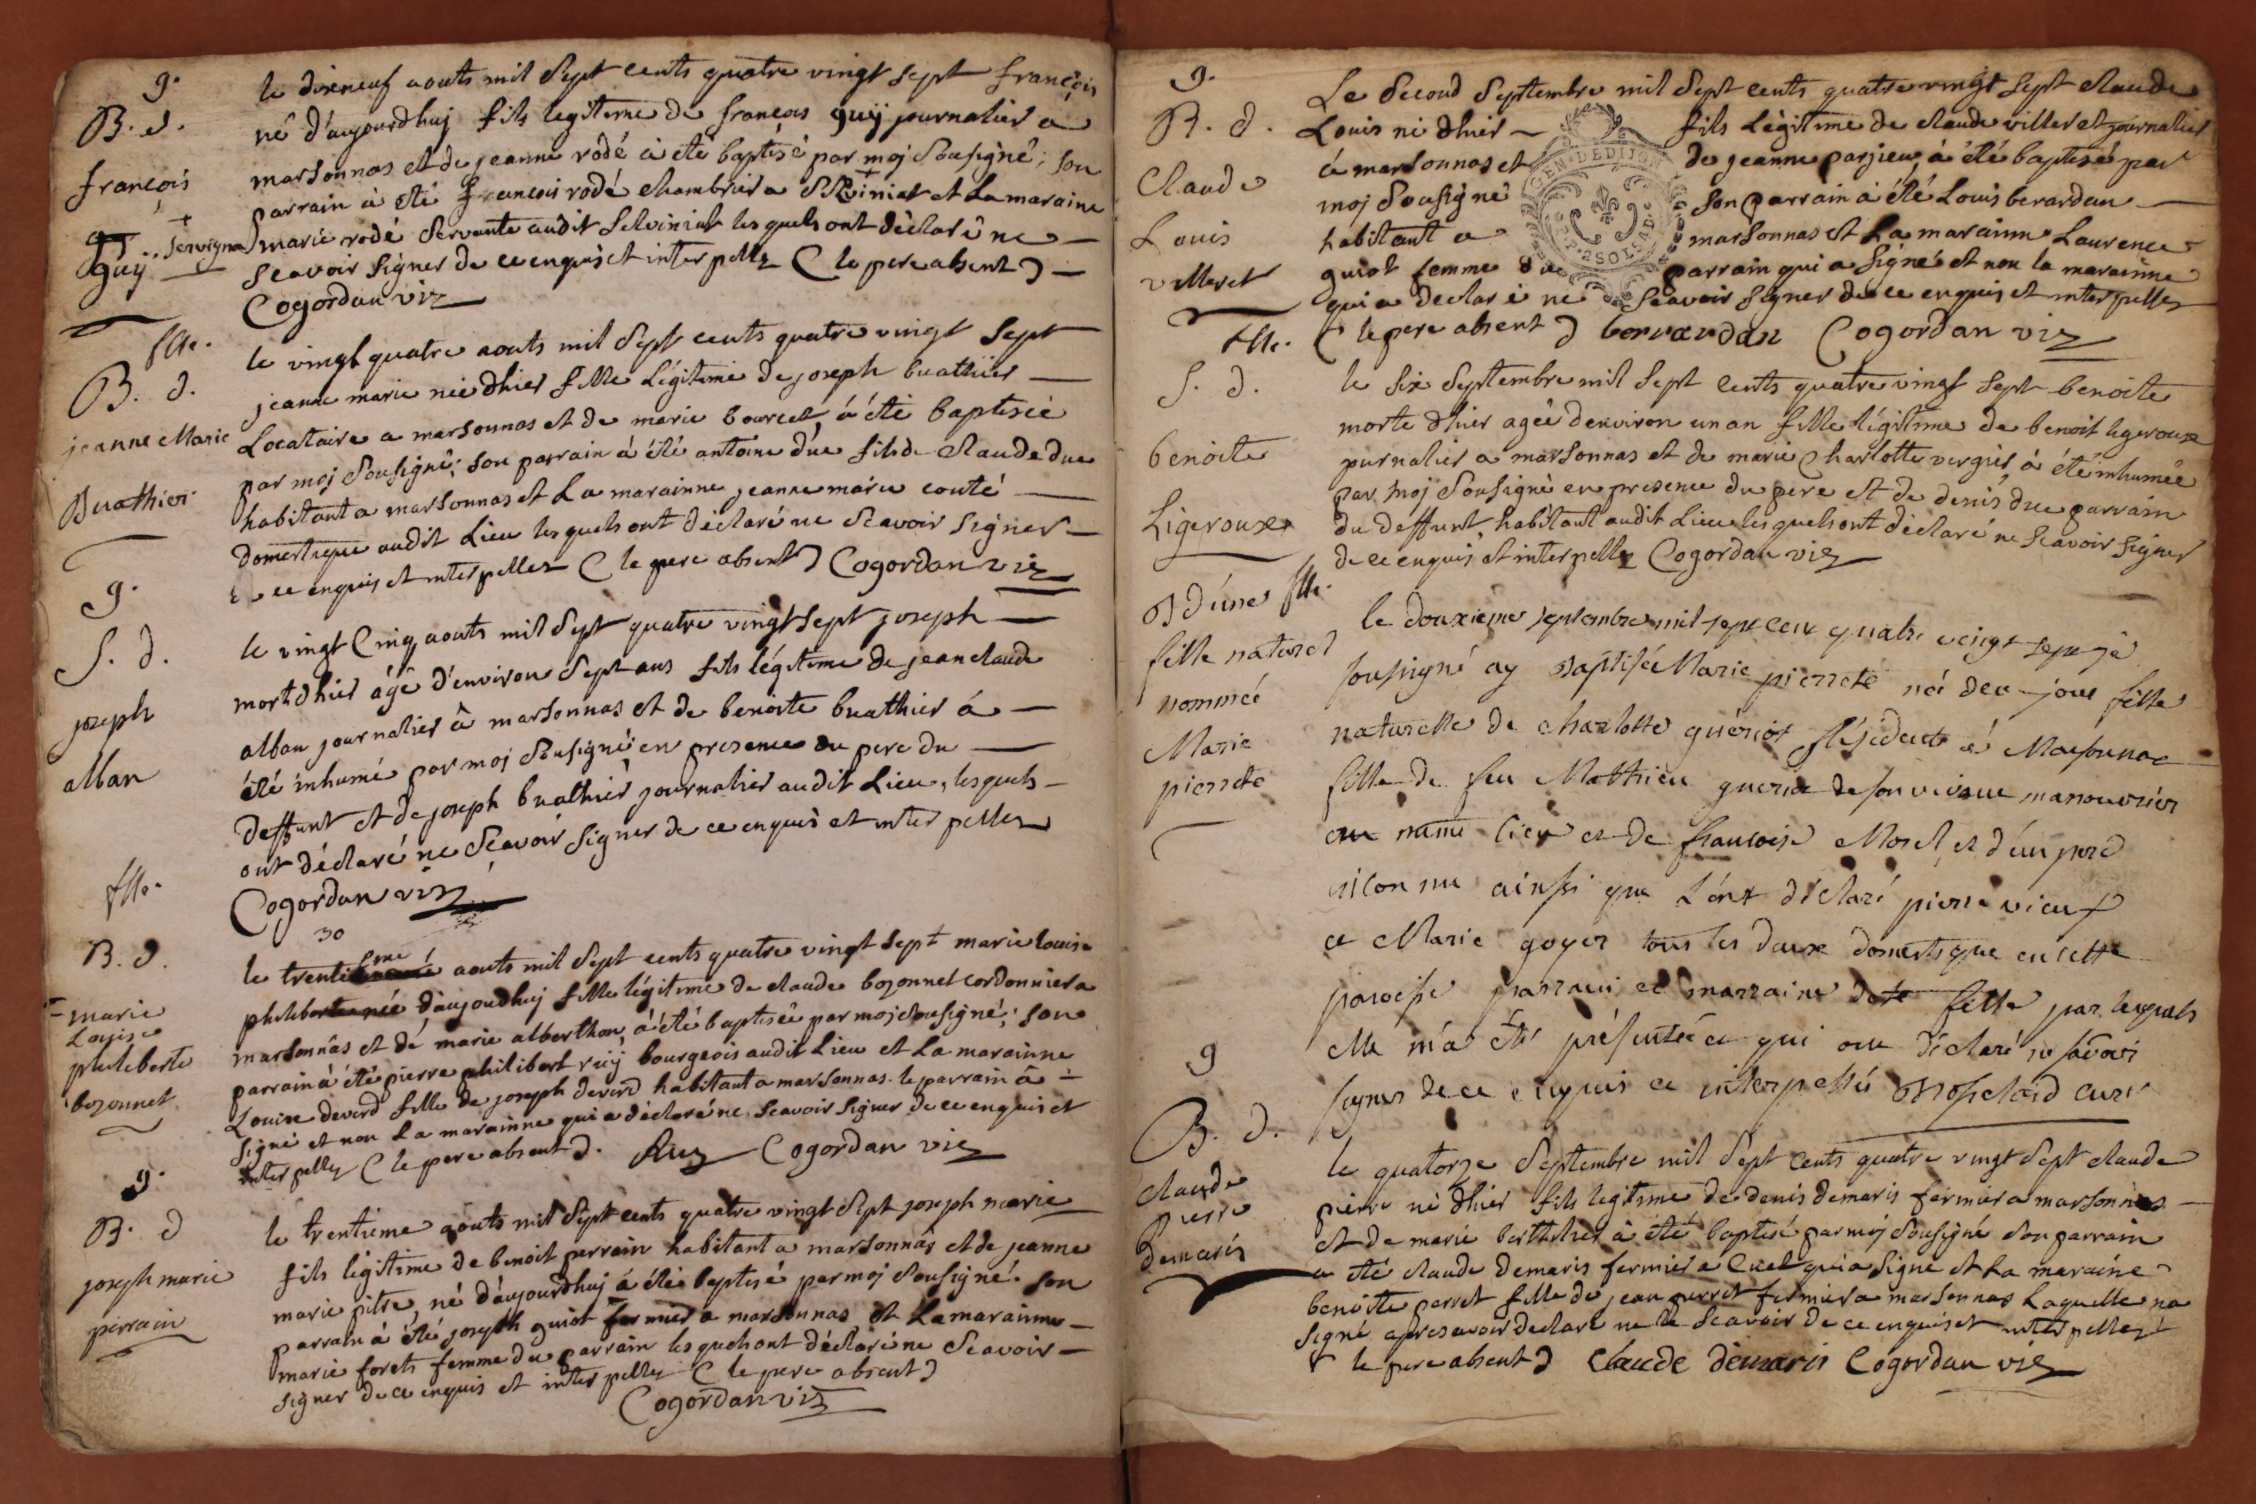 g.
B. d.
françois
+
Servignat
guÿ
le dixneuf aouts mil Sept cents quatre vingt sept françois
né d'aujourdhuj fils legitime de françois guÿ journalier a
marsonnas et de jeanne rodé à été baptisé par moj Sousigné; son
parrain à été françois rodé chambrier a et La maraine
marie rodé Servante audit lesquels ont déclaré ne
Scavoir signer de ce enquis et interpellez ( le pere absent )
Cogordan viz
flle.
B. d.
jeanne Marie
Buathier
le vingt quatre aouts mil Sept cents quatre vingt Sept
jeanne marie née dhier fille Légitime de joseph buathier
Locataire a marsonnas et de marie bourcet, à été baptisée
par moj Sousigné; son parrain à été antoine düe fils de Claude due
habitant a marsonnas et La marainne jeanne marie couté
domestique audit Lieu lesquels ont déclaré ne Scavoir signer
de ce enquis et interpellez ( le pere absent ) Cogordan viz
g.
S. d.
joseph
alban
le vingt Cinq aouts mil Sept quatre vingt Sept joseph
mort dhier âgé d'environ Sept ans fils légitime de jean claude
alban journalier à marsonnas et de benoite buathier á
été inhumé par moj Sousigné en presence du pere du
deffunt et de joseph buathier journalier audit Lieu, lesquels
ont déclaré ne Sçavoir signer de ce enquis et interpellez
Cogordan viz
flle.
B. d.
marie
Louise
philiberte
bozonnet
30
le trentieme aouts mil Sept cents quatre vingt Sept marie louise
philiberte née d'aujourdhuj fille légitime de claude bozonnet cordonnier a
marsonnas et de marie alberthon, à été baptisée par moj Sousigné; son
parrain à été pierre philibert ruÿ bourgeois audit Lieu et La marainne
Louise deverd fille de joseph deverd habitant a marsonnas. le parrain à
signé et non La marainne qui a déclaré ne Scavoir signer de ce enquis et
interpellez ( le pere absent ). Cogordan viz
g.
B. d
joseph marie
perrain
le trentieme aouts mil Sept cents quatre vingt Sept joseph marie
fils légitime de benoit perrain habitant a marsonnas et de jeanne
marie pitre, né d'aujourdhuj á été baptisé par moj Sousigné. son
parrain á été joseph guiot fermier a marsonnas et La marainne
marie forets femme du parrain lesquels ont déclaré ne Scavoir
signer de ce enquis et interpellez ( le pere absent )
Cogordan viz
g.
B. d.
Claude
Louis
villeret
GEN. DE DIJON
2 SOLS
Le Second Septembre mil Sept cents quatre vingt Sept claude
Louis né dhier fils Légitime de claude villeret journalier
à marsonnas et de jeanne parjeu, à été baptisé par
moj Sousigné son parrain à été Louis berardan
habitant a marsonnas et La marainne Laurence
guiot femme du parrain qui a signé et non la marainne
qui a déclaré ne Scavoir signer de ce enquis et interpellez
( le pere absent ) berrardan Cogordan viz
flle.
S. d.
benoite
Ligeroux
le six Septembre mil Sept cents quatre vingt Sept benoite
morte dhier agée denviron un an fille légitime de benoit ligeroux
journalier a marsonnas et de marie charlotte vergier, à été inhumée
par moj Sousigné en presence du pere et de denis due parrain
du deffunt, habitant audit Lieu lesquels ont déclaré ne scavoir signer
de ce enquis et interpellez Cogordan viz
B d'une flle.
fille naturel
nommée
Marie
pierrete
le douxieme septembre mil sept cent quatre vingt sept je
soussigné ay Baptisée Marie pierrete née de ce jour fille
naturelle de charlotte guériot Résidente à Marsonnas
fille de feu Matthieu gueriot de son vivant manouvrier
au même lieu et de francoise Morel, et d'un pere
inconnu ainssi que L'ont déclaré pierre vieux
et Marie goyer tous les deux domestique en cette
paroisse parrain et marraine de la fille par lesquels
elle m'a été présentée et qui ont déclaré ne savoir
signer de ce enquis et interpellés curé
g
B. d.
claude
pierre
demaris
le quatorze Septembre mil Sept Cents quatre vingt Sept claude
pierre né dhier fils legitime de denis demaris fermier a marsonnas
et de marie berthelier à été baptisé par moj Sousigné Son parrain
a été claude demaris fermier a Cuet qui a signé et La maraine
benoite perret fille de jean perret fermier a marsonnas Laquelle na
signé apres avoir declaré ne le Scavoir de ce enquis et interpellez
( le pere absent ) Claude demaris Cogordan viz